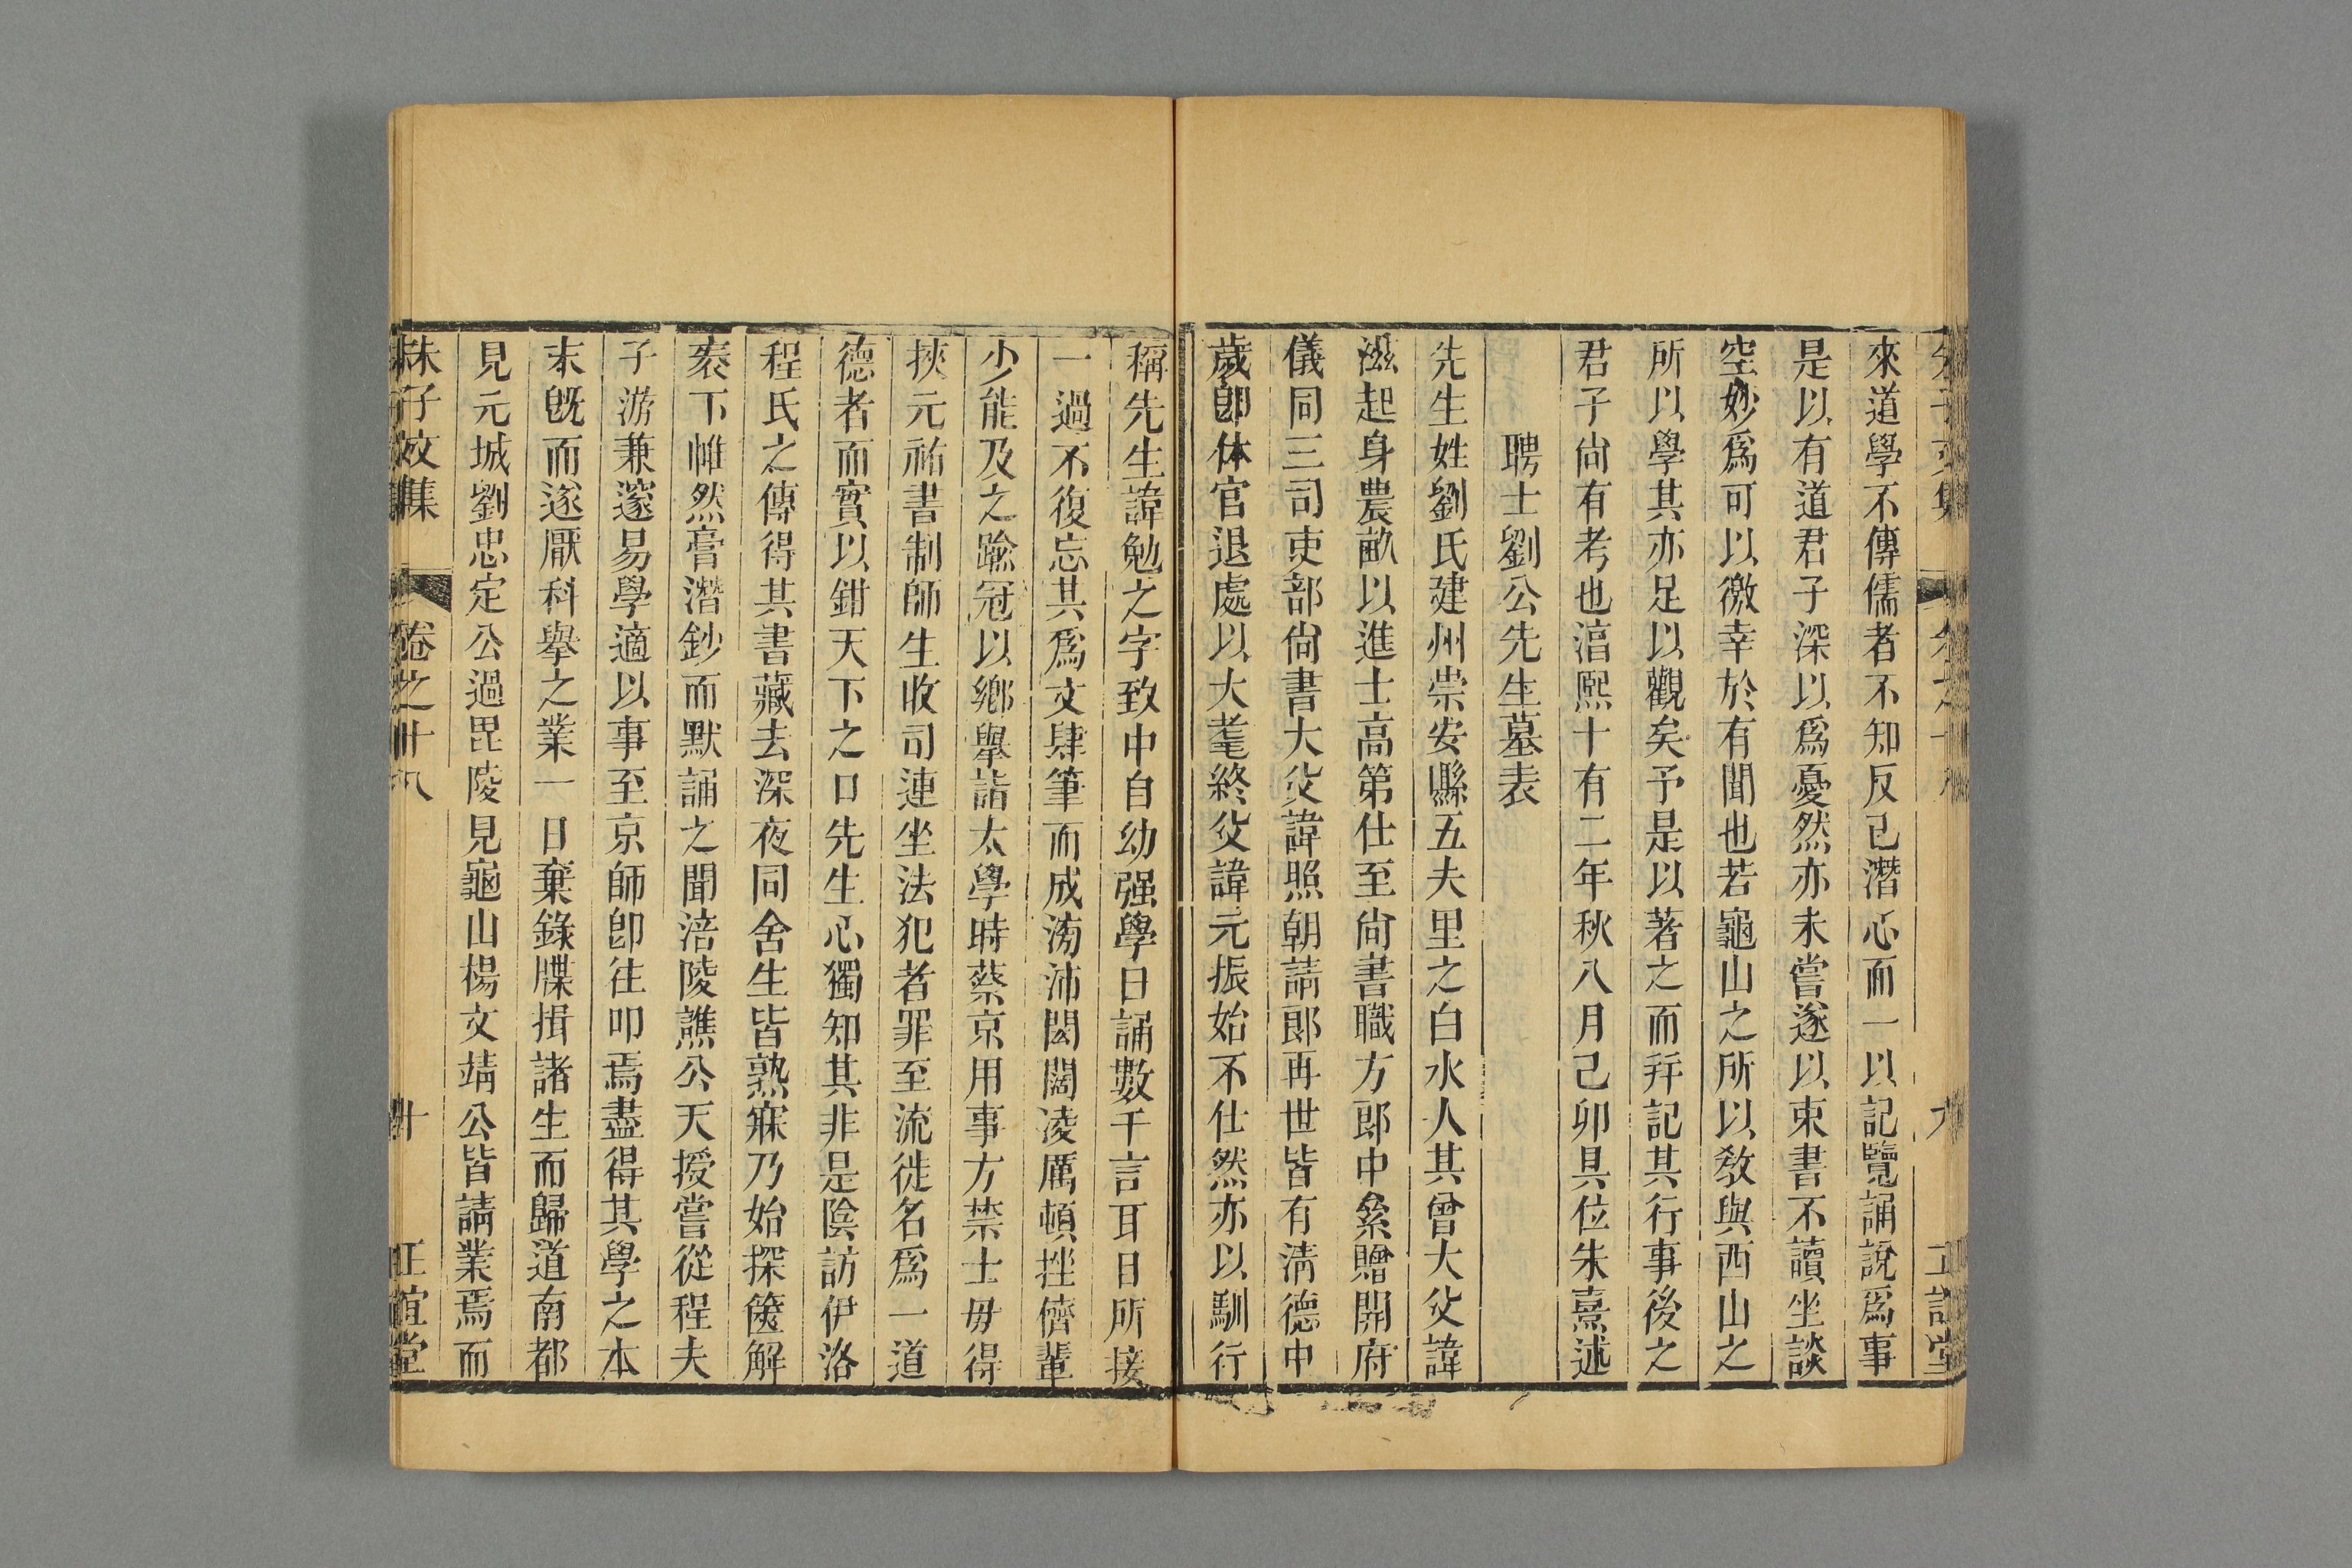 來道學不傳儒者不知反已潛心而一以記覽誦說爲事
是以有道君子深以爲憂然亦未嘗遂以束書不讀坐談
空妙爲可以徼幸於有聞也若龜山之所以敎與西山之
所以學其亦足以觀矣予是以著之而幷記其行事後之
君子尙有考也淳熙十有二年秋八月己卯具位朱熹述
聘士劉公先生墓表
先生姓劉氏建州崇安縣五夫里之白水人其曾大父諱
滋起身農畝以進士高第仕至尙書職方郎中絫贈開府
儀同三司吏部尙書大父諱照朝請郎再世皆有淸德中
歲卽休官退處以大耄終父諱元振始不仕然亦以馴行
稱先生諱勉之字致中自幼强學日誦數千言耳目所接
一過不復忘其爲文肆筆而成滂沛閎闊凌厲頓挫儕輩
少能及之踰冠以鄕舉詣太學時蔡京用事方禁士毋得
挾元祐書制師生收司連坐法犯者罪至流徙名爲一道
德者而實以鉗天下之口先生心獨知其非是陰訪伊洛
程氏之傳得其書藏去深夜同舍生皆熟寐乃始探篋解
袠下帷然膏潛鈔而默誦之聞涪陵譙公天授嘗從程夫
子游兼邃易學適以事至京師卽往叩焉盡得其學之本
末旣而遂厭科舉之業一日棄錄牒揖諸生而歸道南都
見元城劉忠定公過毘陵見龜山楊文靖公皆請業焉而
朱子文集
卷之十八
十
正誼堂